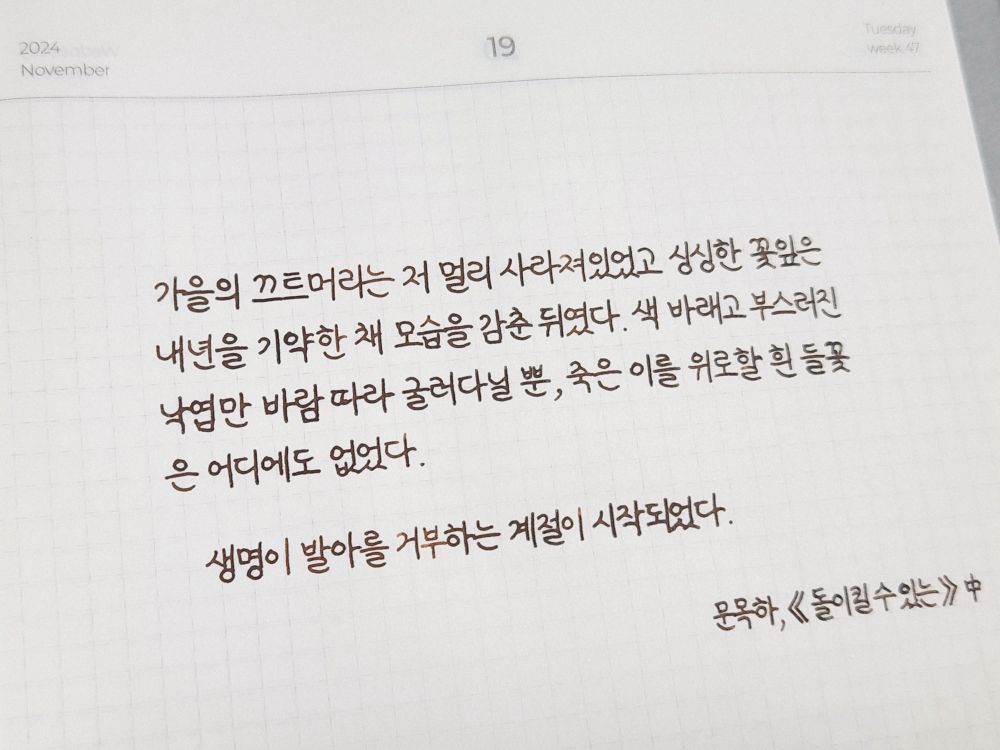 2024
November
19
Tuesday
week 47
가을의 끄트머리라는 저 멀리 사라져있었고 싱싱한 꽃잎은
내년을 기약한 채 모습을 감춘 뒤였다. 색 바래고 부스러진
낙엽만 바람 따라 굴러다닐 뿐, 죽은 이를 위로할 흰 들꽃
은 어디에도 없었다.
생명이 발아를 거부하는 계절이 시작되었다.
문목하, 《돌이킬 수 있는》 中